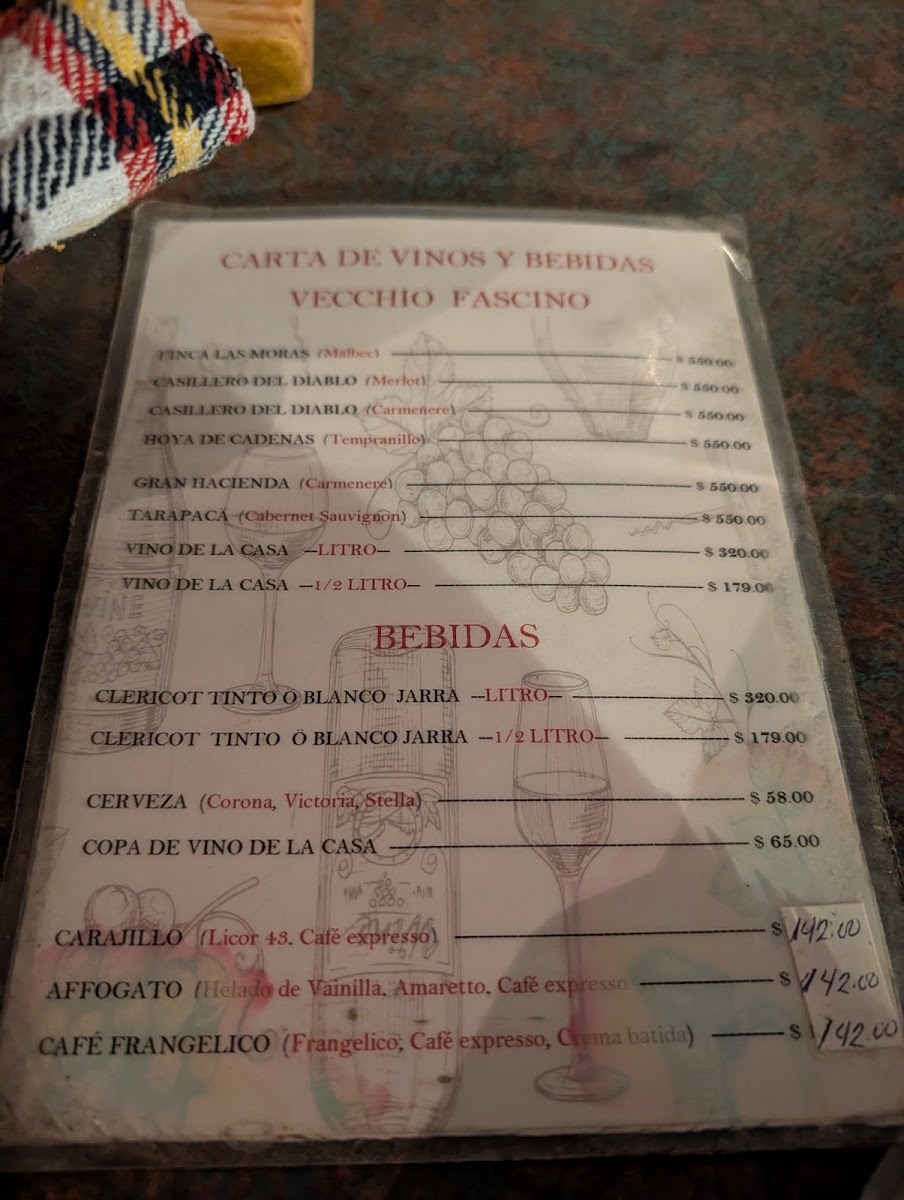 CARTA DE VINOS Y BEBIDAS
VECCHIO FASCINO
FINCA LAS MORAS (Malbec) $ 550.00
CASILLERO DEL DIABLO (Merlot) $ 550.00
CASILLERO DEL DIABLO (Carmenere) $ 550.00
HOYA DE CADENAS (Tempranillo) $ 550.00
GRAN HACIENDA (Carmenere) $ 550.00
TARAPACÁ (Cabernet Sauvignon) $ 550.00
VINO DE LA CASA --LITRO-- $ 320.00
VINO DE LA CASA --1/2 LITRO-- $ 179.00
VINE
BEBIDAS
CLERICOT TINTO O BLANCO JARRA --LITRO-- $ 320.00
CLERICOT TINTO Ó BLANCO JARRA --1/2 LITRO-- $ 179.00
CERVEZA (Corona, Victoria, Stella) $ 58.00
COPA DE VINO DE LA CASA $ 65.00
CARAJILLO (Licor 43. Café expresso) $ 142.00
AFFOGATO (Helado de Vainilla. Amaretto. Café expresso $ 142.00
CAFÉ FRANGELICO (Frangelico; Café expresso, Crema batida) $ 142.00